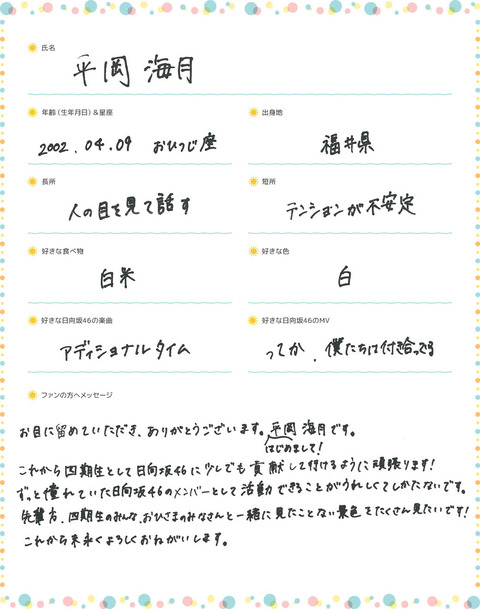 氏名
平岡 海月
年齢（生年月日）＆星座
2002.04.09 おひつじ座
出身地
福井県
長所
人の目を見て話す
短所
テンションが不安定
好きな食べ物
白米
好きな色
白
好きな日向坂46の楽曲
アディショナルタイム
好きな日向坂46のMV
ってか 、僕たちは付き合ってる
ファンの方へメッセージ
お目に留めていただき、ありがとうございます。平岡 海月です。
はじめまして!
これから四期生として日向坂46に少しでも貢献して行けるように頑張ります!
ずっと憧れていた日向坂46のメンバーとして活動できることがうれしくてしかたないです。
先輩方、四期生のみんな、おひさまのみなさんと一緒に見たことない景色をたくさん見たいです!
これから末永くよろしくおねがいします。